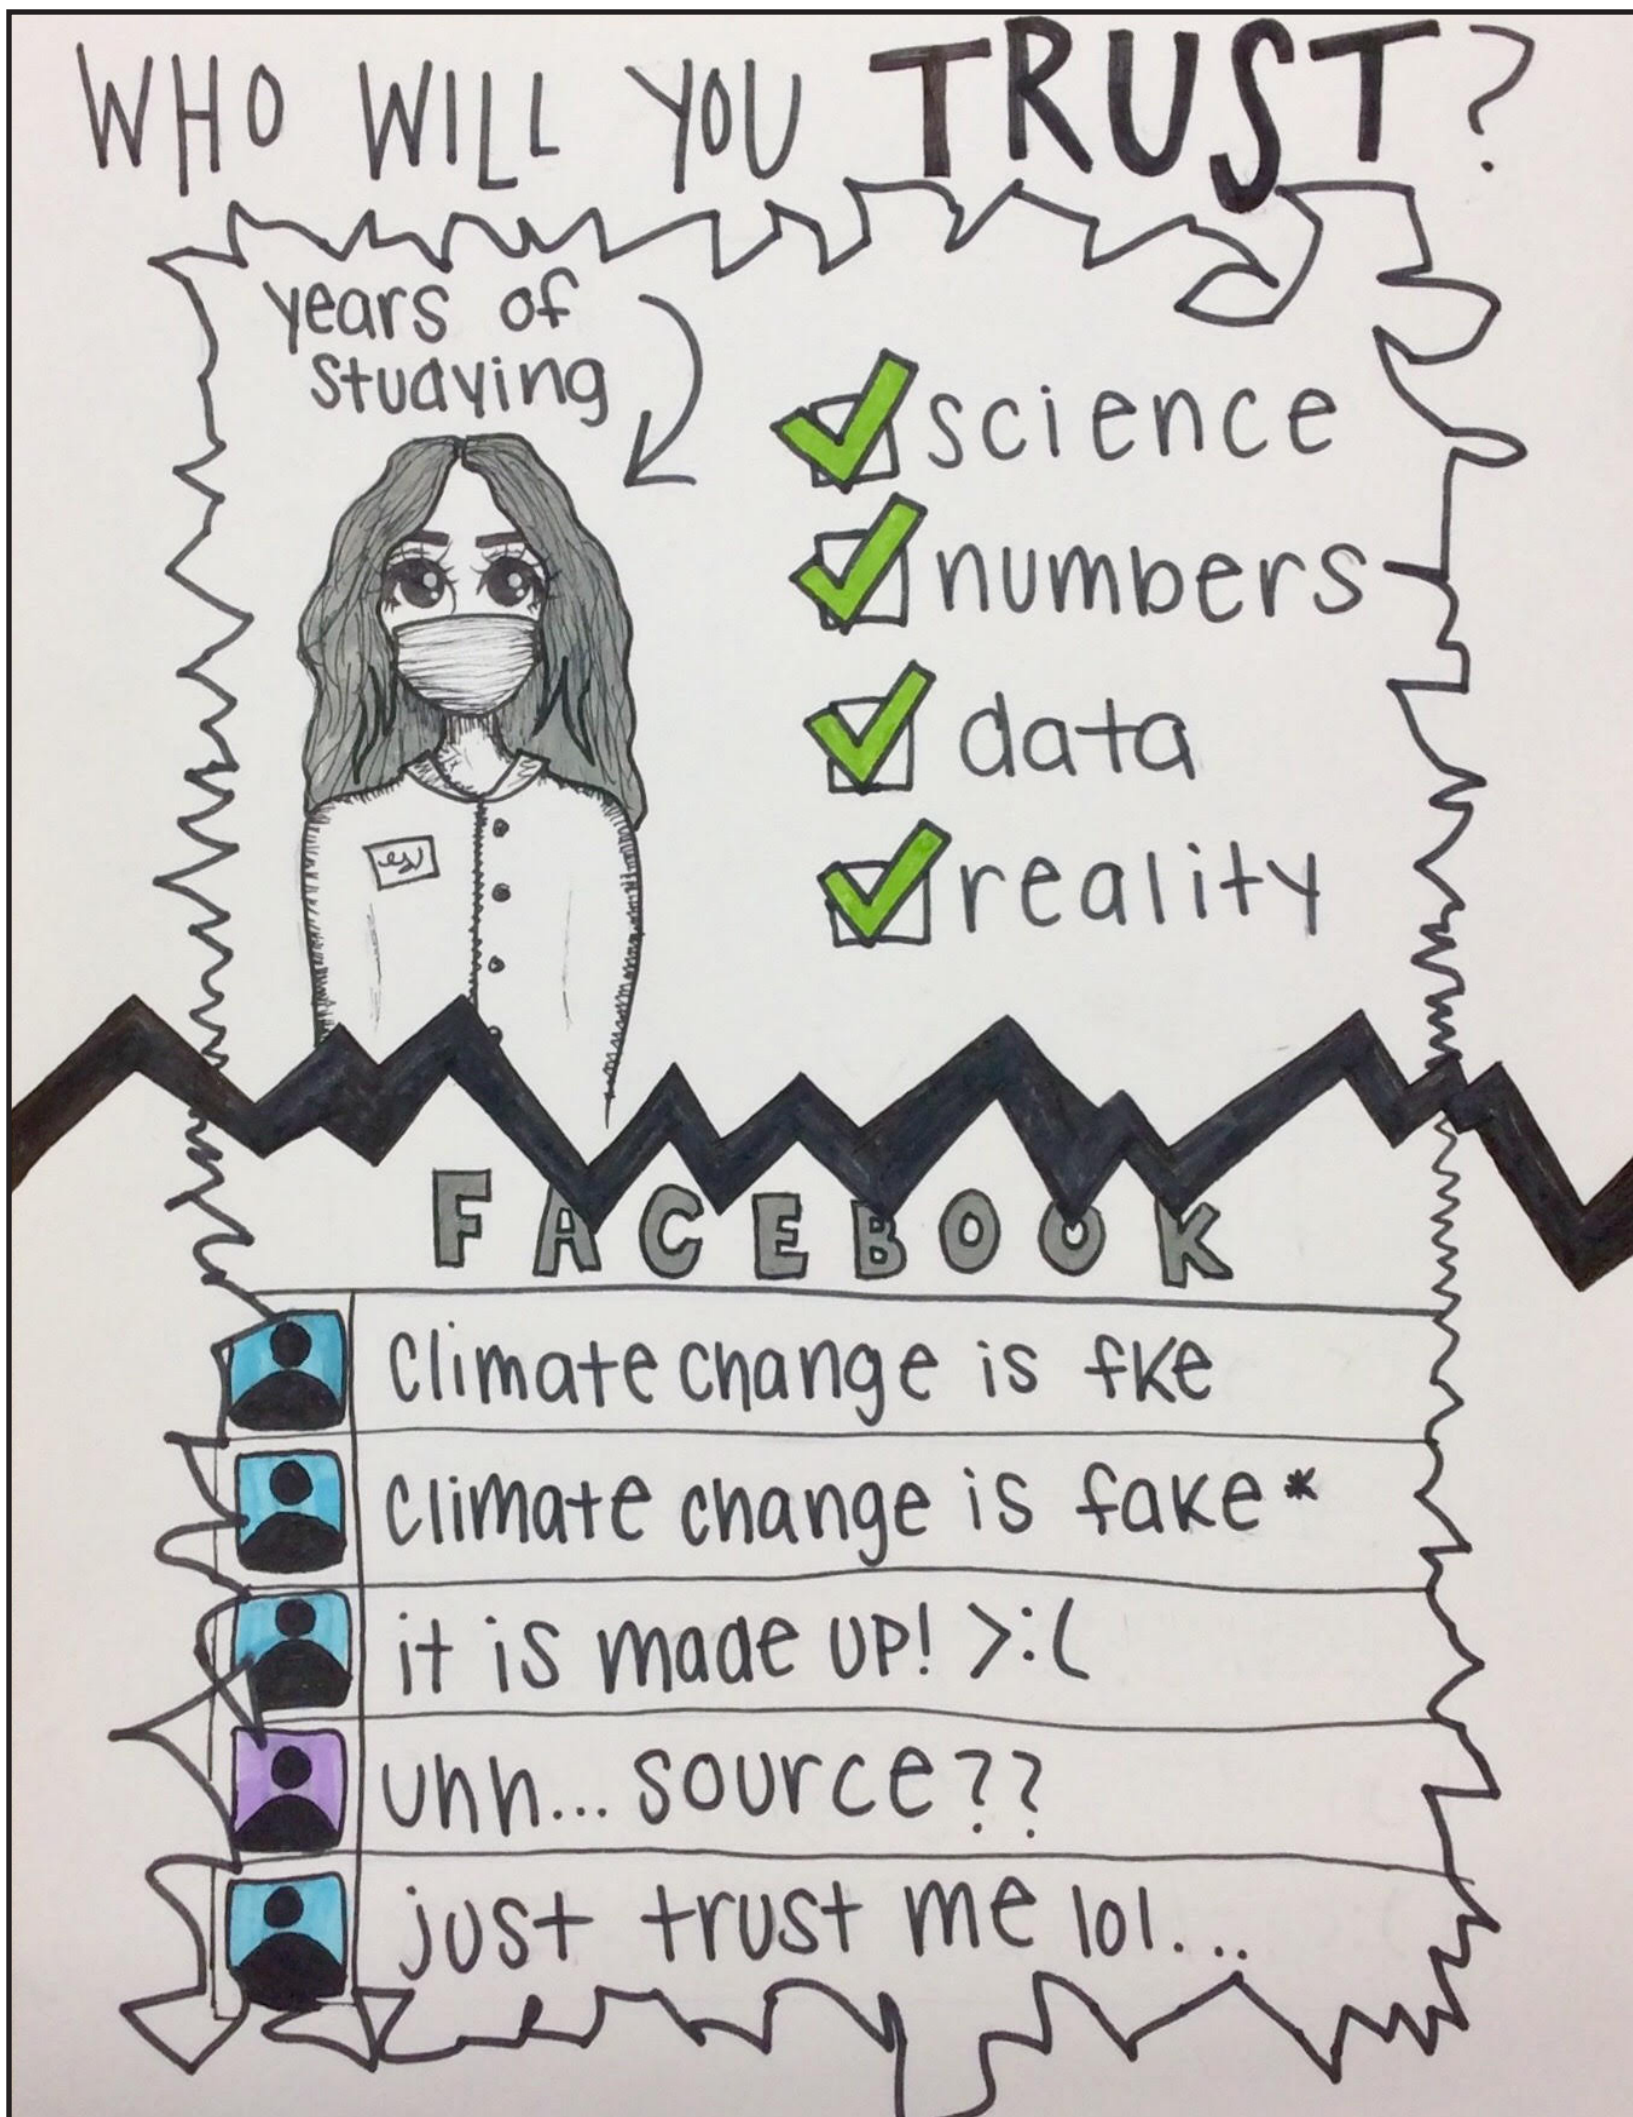 WHO WILL YOU TRUST?
years of
studying
science
numbers
data
reality
FACEBOOK
climate change is fke
climate change is fake*
it is made up! >:(
uhh... source??
just trust me lol...